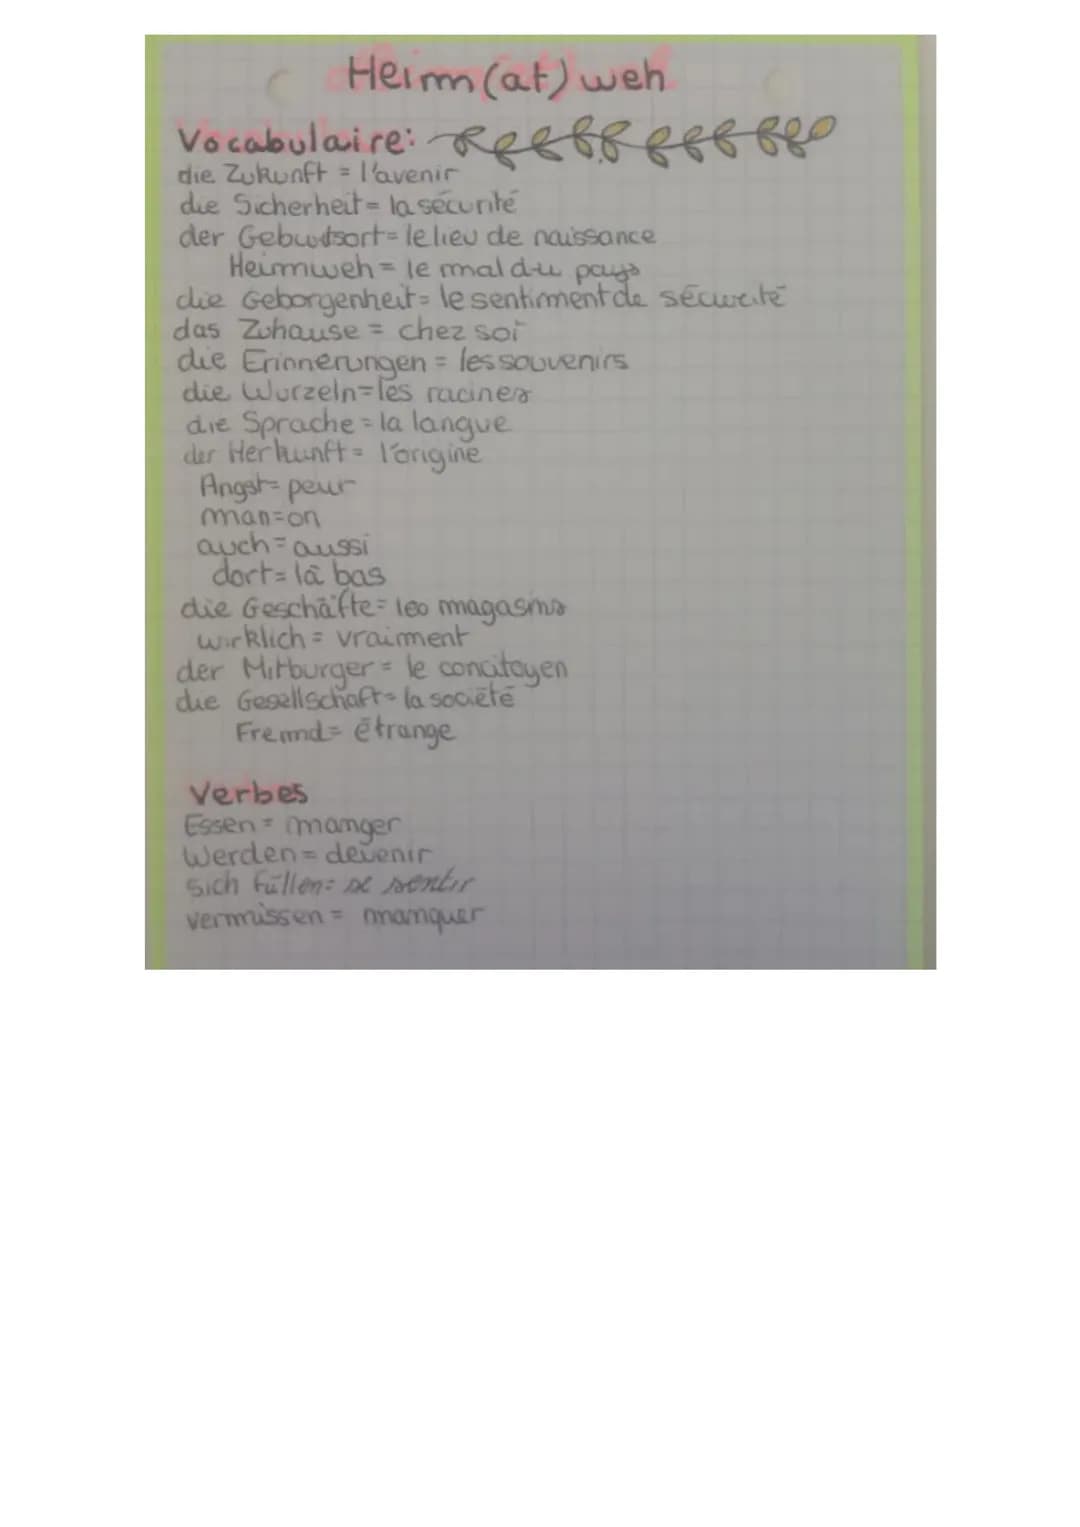 Heim(at)weh
Vocabulaire:
die Zukunft = l'avenir
die Sicherheit = la sécurité
der Gebudsort = le lieu de naissance
Heimweh = le mal du pays
die Geborgenheit = le sentiment de sécurité
das Zuhause = chez soi
die Erinnerungen = les souvenirs
die Wurzeln = les racines
die Sprache = la langue
der Herkunft = l'origine
Angst = peur
man = on
auch = aussi
dort = là bas
die Geschäfte = les magasins
wirklich = vraiment
der Mitburger = le concitoyen
die Gesellschaft = la société
Fremd = étrange
Verbes
Essen = manger
Werden = devenir
Sich füllen = se sentir
vermissen = manquer